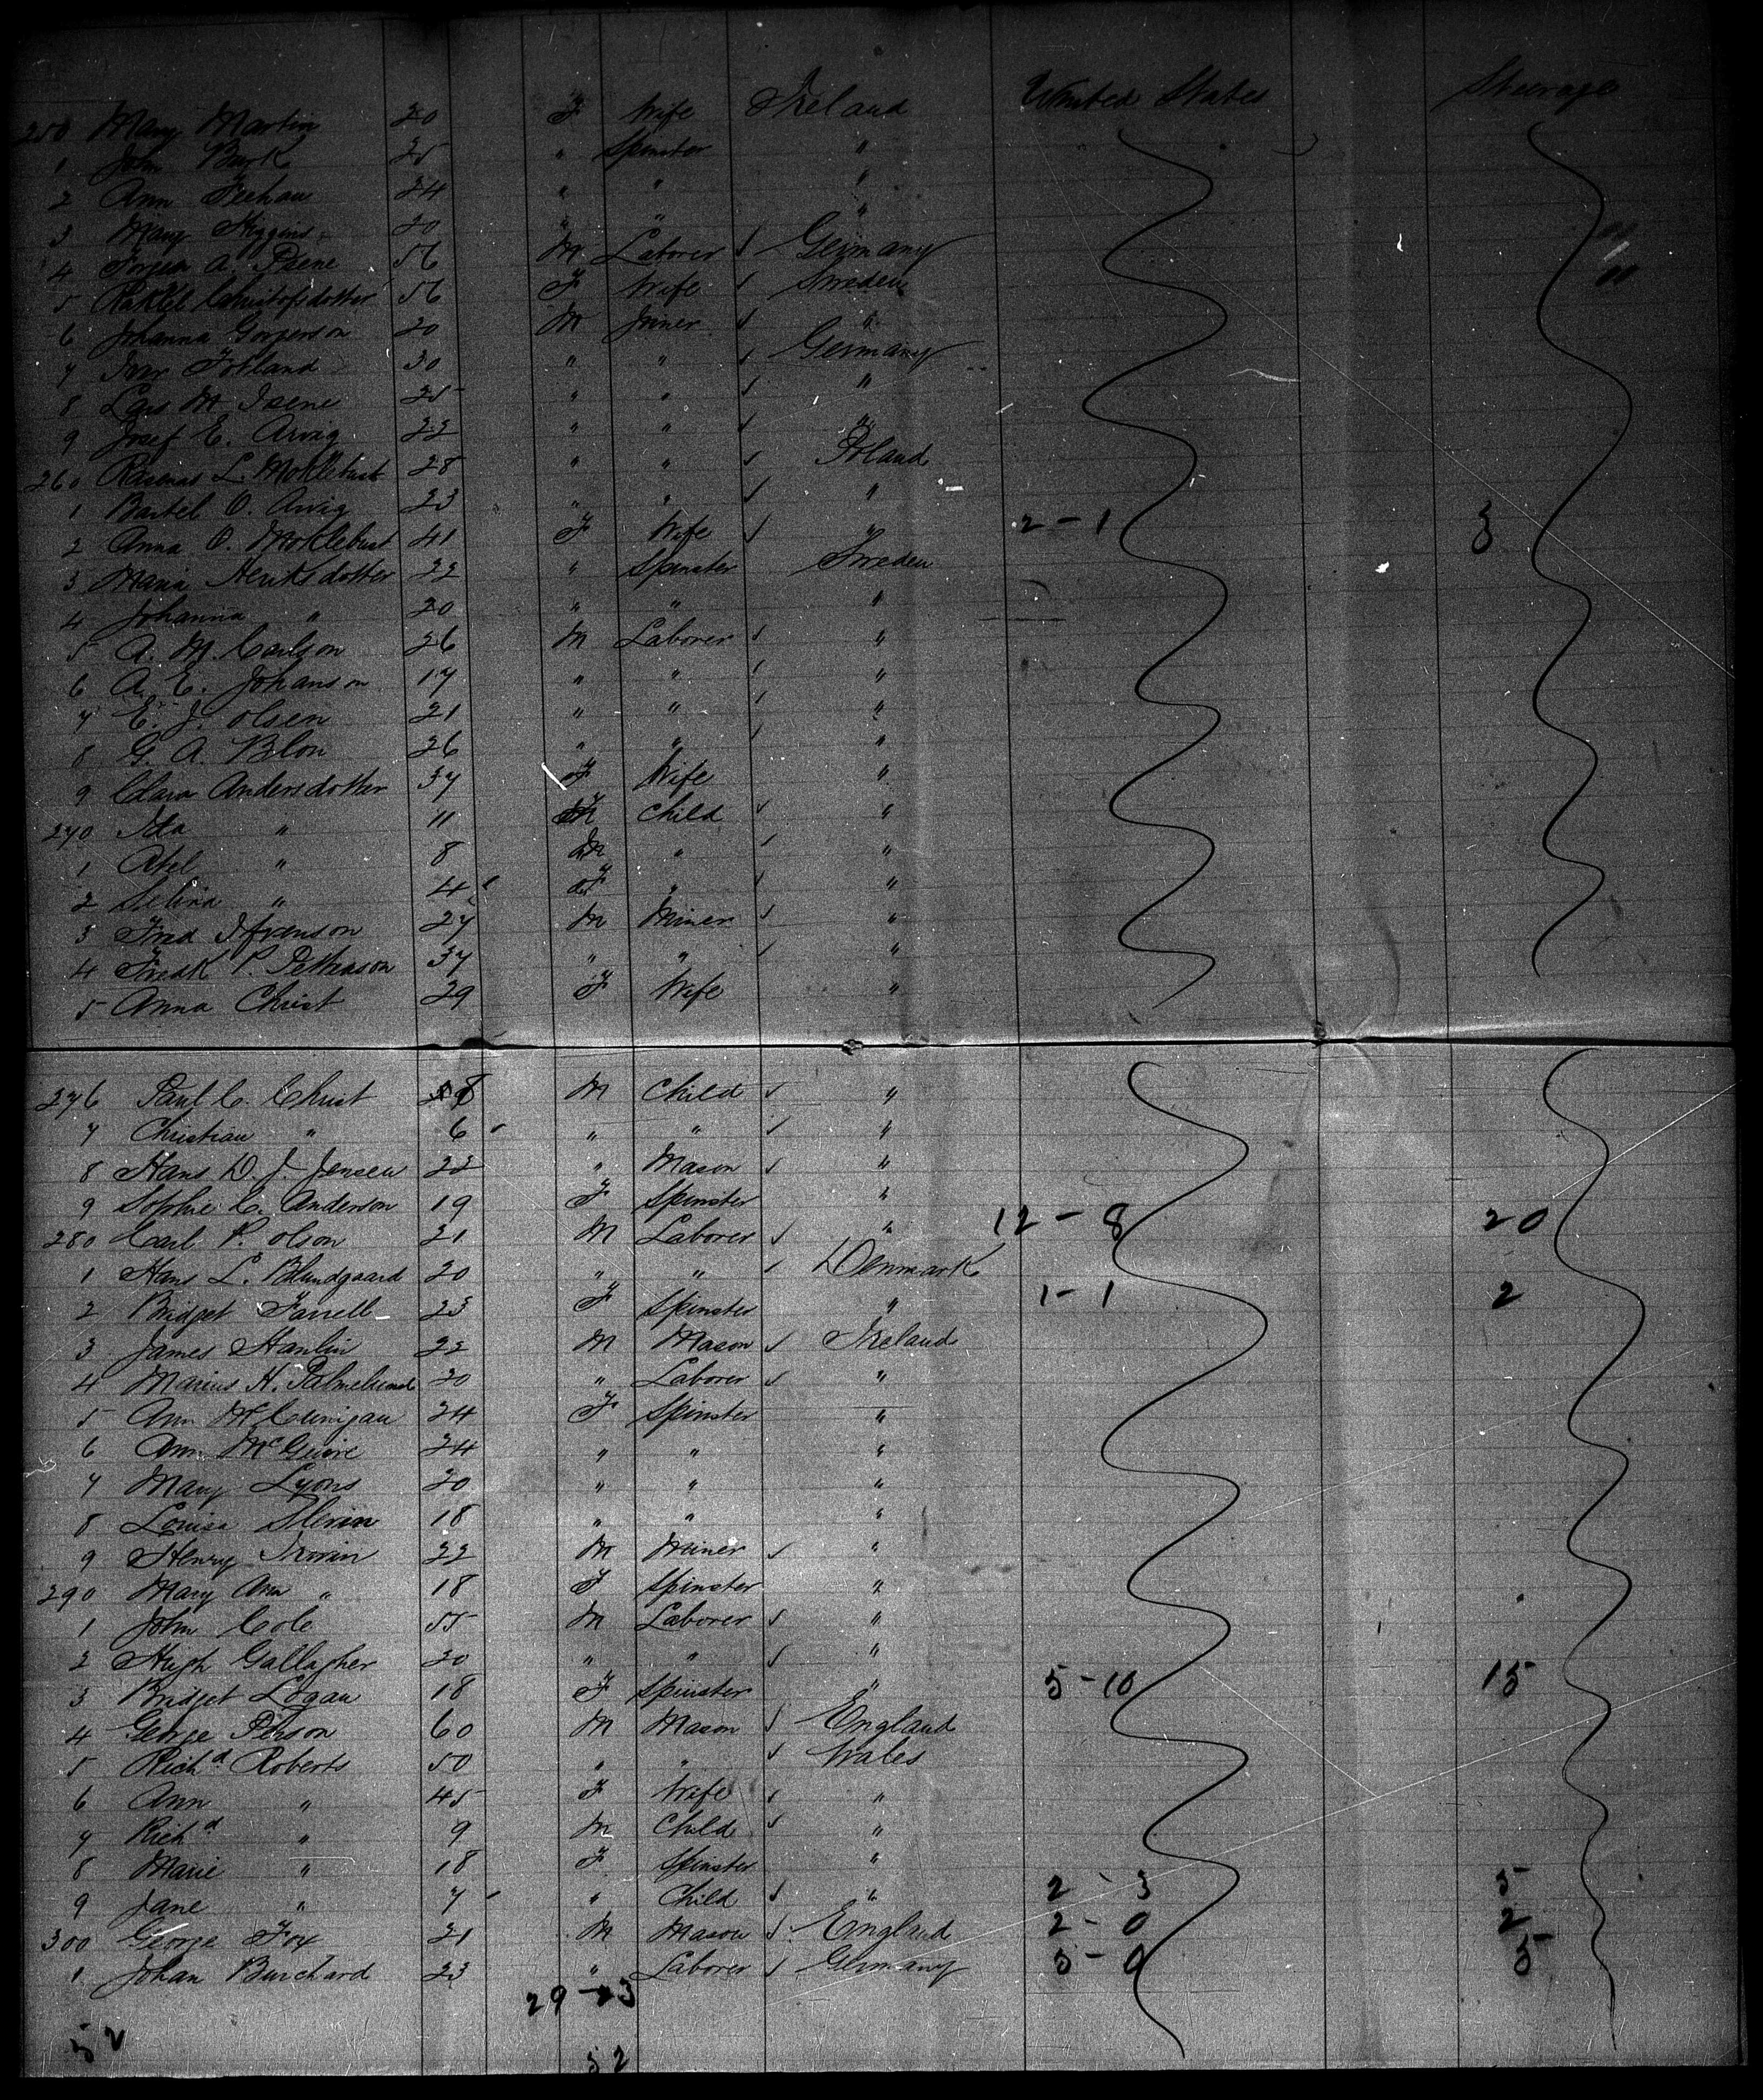 250 Mary Martin 20 F Wife Ireland United States Steerage
1 John Burk 25 " Spinster "
2 Ann Feehan 24 " " "
3 Mary Higgins 20 " " "
4 A. 56 M Laborer ✓ Germany
5 56 F Wife ✓ Sweden
6 Johanna 20 M Miner ✓ "
7 Iver 30 " " ✓ Germany
8 Lars M. 25 " " ✓ "
9 Josef E. Arvig 22 " " ✓ "
260 L. Moklebust 28 " " ✓ Poland
1 Bartel O. Arvig 23 " " ✓ "
2 Anna O. Moklebust 41 F Wife ✓ " 2-1 3
3 Maria Henriksdotter 22 " Spinster Sweden
4 Johanna " 20 " " "
5 A. M. Carlson 26 M Laborer ✓ "
6 A. E. Johanson 17 " " ✓ "
7 E. J. Olsen 21 " " ✓ "
8 G. A. Blon 26 " " ✓ "
9 Clara Andersdotter 37 F Wife "
270 Ida " 11 F Child ✓ "
1 Axel " 8 M " ✓ "
2 Selina " 4 F " ✓ "
3 Fred 27 M Miner ✓ "
4 Fredk P. Petterson 37 " " ✓ "
5 Anna Christ 29 F Wife "
276 Paul C. Christ 8 M Child ✓ "
7 Christian " 6 " " ✓ "
8 Hans D. J. Jensen 22 " Mason ✓ "
9 Sophie C. Anderson 19 F Spinster " 12-8 20
280 Carl P. Olson 21 M Laborer ✓ "
1 Hans L. Blundgaard 20 " " ✓ Denmark
2 Bridget Farrell 23 F Spinster " 1-1 2
3 James Hanlin 22 M Mason ✓ Ireland
4 Marius H. 20 " Laborer ✓ "
5 Ann 24 F Spinster "
6 Ann McGuire 24 " " "
7 Mary Lyons 20 " " "
8 Louisa Slevin 18 " " "
9 Henry Irwin 22 M Miner ✓ "
290 Mary Ann " 18 F Spinster "
1 John Cole 55 M Laborer ✓ "
2 Hugh Gallagher 20 " " ✓ "
3 Bridget Logan 18 F Spinster " 5-10 15
4 George Person 60 M Mason ✓ England
5 Richd Roberts 50 " " ✓ Wales
6 Ann " 45 F Wife ✓ "
7 Richd " 9 M Child ✓ "
8 Marie " 18 F Spinster "
9 Jane " 7 " Child ✓ " 2-3 5
300 George Fox 21 M Mason ✓ England 2-0 2
1 Johan Burchard 23 " Laborer ✓ Germany 5-0 5
29-23
52 52